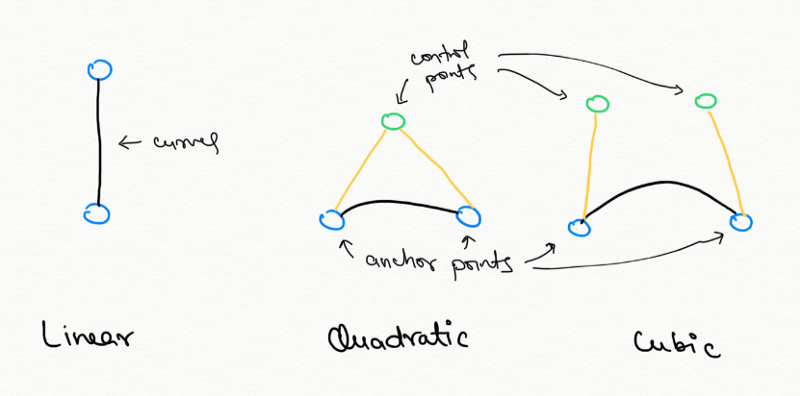 control
points
← curves
anchor points
Linear
Quadratic
Cubic